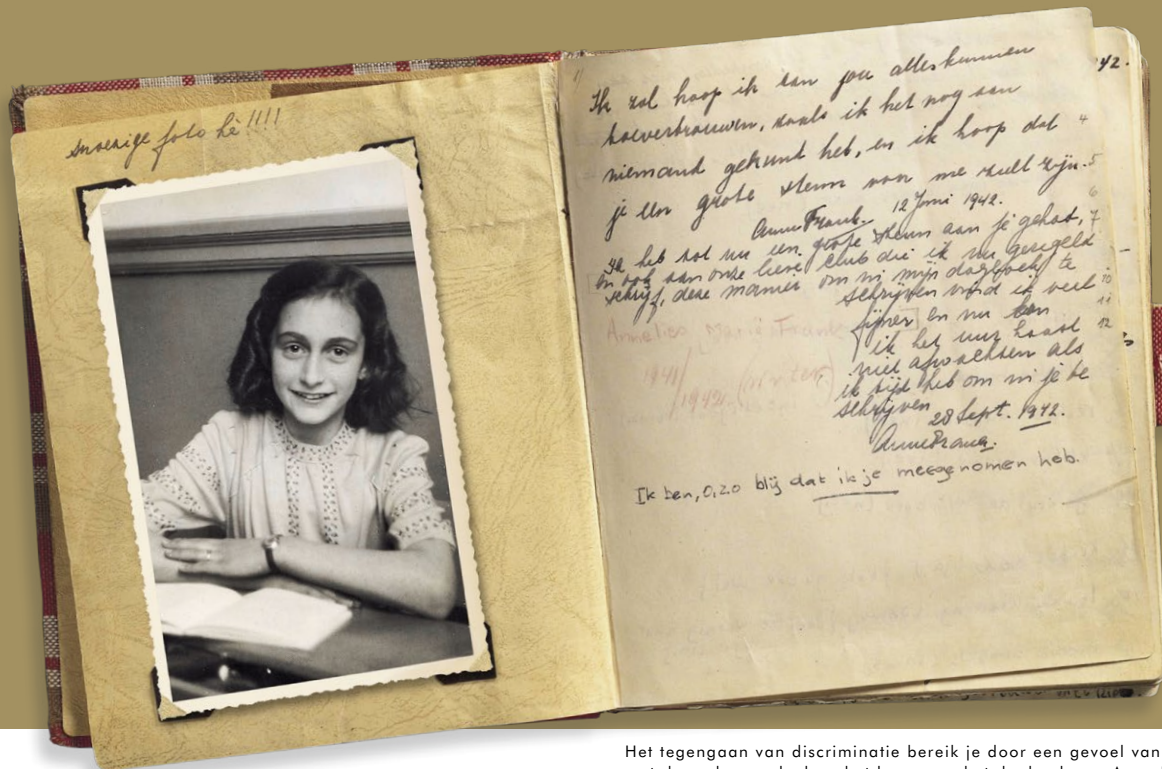 snoezige foto hè !!!!
42.
Ik zal hoop ik aan jou alles kunnen
toevertrouwen, zoals ik het nog aan
niemand gekund heb, en ik hoop dat
je een grote steun voor me zult zijn.
Anne Frank. 12 Juni 1942.
Ik heb tot nu een grote steun aan je gehad,
en ook aan onze lieve club die ik nu geregeld
schrijf, deze manier om in mijn dagboek te
schrijven vind ik veel
fijner en nu kan
ik het uur haast
niet afwachten als
ik tijd heb om in je te
schrijven
28 Sept. 1942.
Anne Frank.
Annelies Marie Frank
1941/
1942.
Ik ben, o, zo blij dat ik je meegenomen heb.
4
5
6
7
10
11
12
Het tegengaan van discriminatie bereik je door een gevoel van